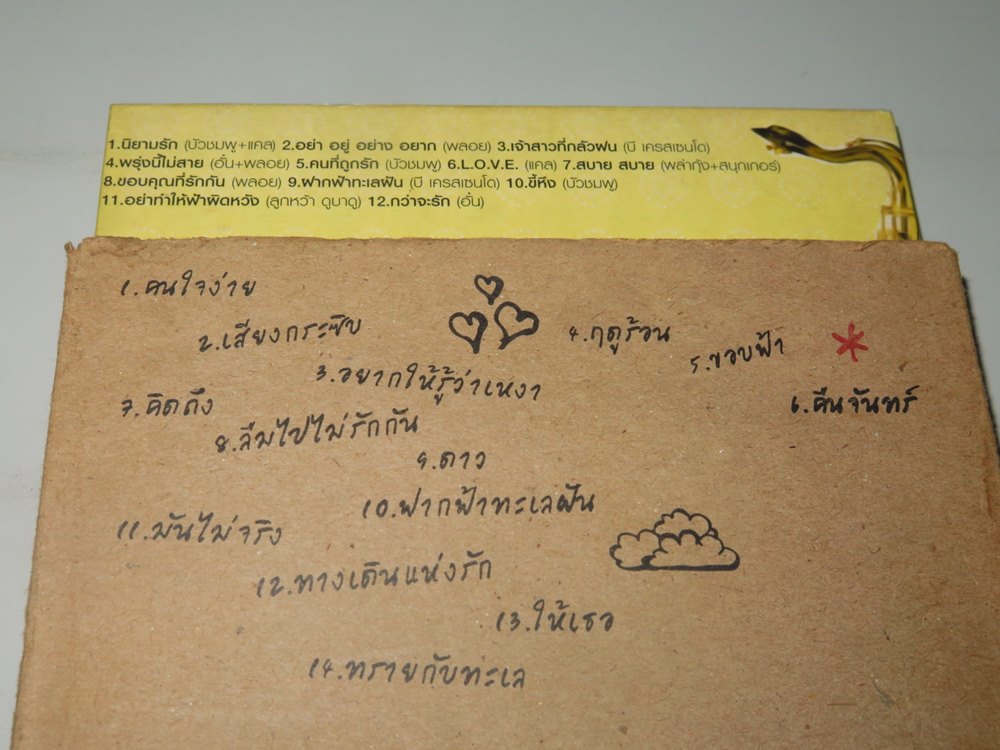 1.นิยามรัก (บัวชมพู+แคล) 2.อย่า อยู่ อย่าง อยาก (พลอย) 3.เจ้าสาวที่กลัวฝน (บี เครสเซนโด)
4.พรุ่งนี้ไม่สาย (อั๋น+พลอย) 5.คนที่ถูกรัก (บัวชมพู) 6.L.O.V.E. (แคล) 7.สบาย สบาย (พล่ากุ้ง+สนุกเกอร์)
8.ขอบคุณที่รักกัน (พลอย) 9.ฝากฟ้าทะเลฝัน (บี เครสเซนโด) 10.ขี้หึง (บัวชมพู)
11.อย่าทำให้ฟ้าผิดหวัง (ลูกหว้า ดูบาดู) 12.กว่าจะรัก (อั๋น)
1.คนใจง่าย
2.เสียงกระซิบ
3.อยากให้รู้ว่าเหงา
4.ฤดูร้อน
5.ขอบฟ้า
6.คืนจันทร์
7.คิดถึง
8.ลืมไปไม่รักกัน
9.ดาว
10.ฝากฟ้าทะเลฝัน
11.มันไม่จริง
12.ทางเดินแห่งรัก
13.ให้เธอ
14.ทรายกับทะเล